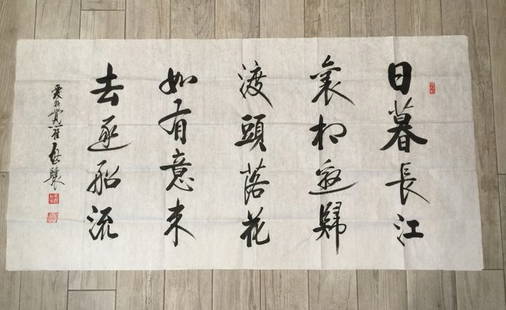 日暮長江
裏相邀歸
渡頭落花
如有意来
去逐船流